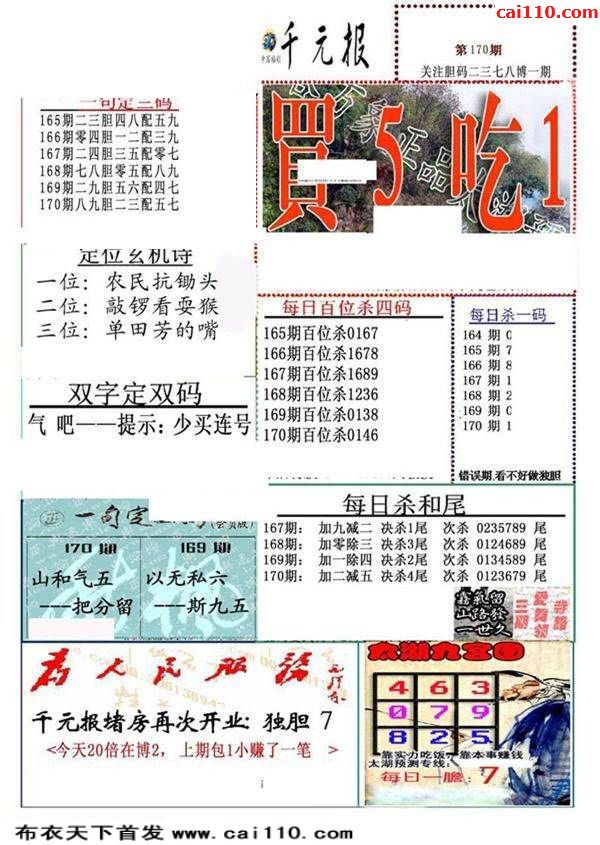 cai110.com
千元报
第170期
关注胆码二三七八博一期
一句定三码
165期二三胆四八配五九
166期零四胆一二配三九
167期二四胆三五配零七
168期七八胆零五配八九
169期二九胆五六配四七
170期八九胆二三配五七
買5吃1
定位玄机诗
一位：农民抗锄头
二位：敲锣看耍猴
三位：单田芳的嘴
每日百位杀四码
165期百位杀0167
166期百位杀1678
167期百位杀1689
168期百位杀1236
169期百位杀0138
170期百位杀0146
每日杀一码
164 期 0
165 期 7
166 期 8
167 期 1
168 期 2
169 期 0
170 期 1
错误期,看不好做独胆
双字定双码
气 吧——提示：少买连号
一句定
(会员版)
170 期
山和气五
---把分留
169 期
以无私六
---斯九五
每日杀和尾
167期： 加九减二 决杀1尾 次杀 0235789 尾
168期： 加零除三 决杀3尾 次杀 0124689 尾
169期： 加一除四 决杀2尾 次杀 0134589 尾
170期： 加二减五 决杀4尾 次杀 0123679 尾
为人民服务
千元报堵房再次开业：独胆 7
<今天20倍在博2，上期包1小赚了一笔 >
太湖九宫图
4 6 3
0 7 9
8 2 5
靠实力吃饭，靠本事赚钱
太湖预测专线：
每日一胆：7
布衣天下首发 www.cai110.com